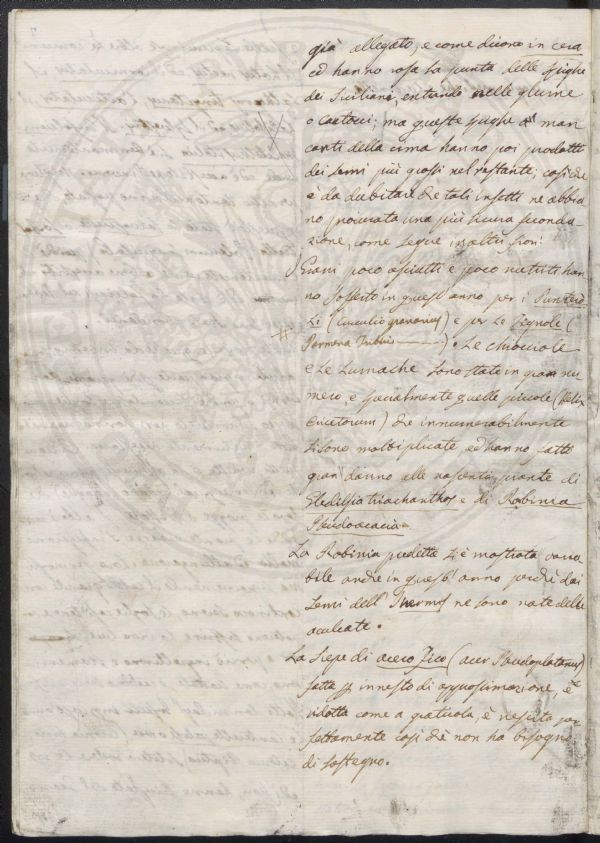 già allegato, e come dicono in cera
ed hanno rosa la punta delle spighe
dei Siciliani, entrando nelle glume
o Caetoni; ma queste spighe man
canti della cima hanno poi prodotti
dei semi più grossi nel restante; cosi che
è da dubitare che tali insetti ne abbia
no procurata una più sicura feconda-
zione, come segue in altri fiori.
I Grani poco asciutti e poco nutriti han
no sofferto in quest' anno per i Puntero
li (Curculio granarius) e per le Tignole (
) . Le chiocciole
e le Lumache sono state in gran nu
mero, e specialmente quelle piccole (Helix
Ericetorum) che innumerabilmente
si sono moltiplicate, ed hanno fatto
gran danno alle nascenti piante di
Gleditsia triachanthos e di Robinia
Pseudoacacia.
La Robinia predetta si è mostrata varia
bile anche in quest' anno perchè dai
semi dell' Inermis ne sono nate delle
aculeate.
La Siepe di acero Fico (acer Pseudoplatanus)
fatta p innesto di approssimazione, e
ridotta come a graticola, è riescita per
fettamente cosi che non ha bisogno
di sostegno.